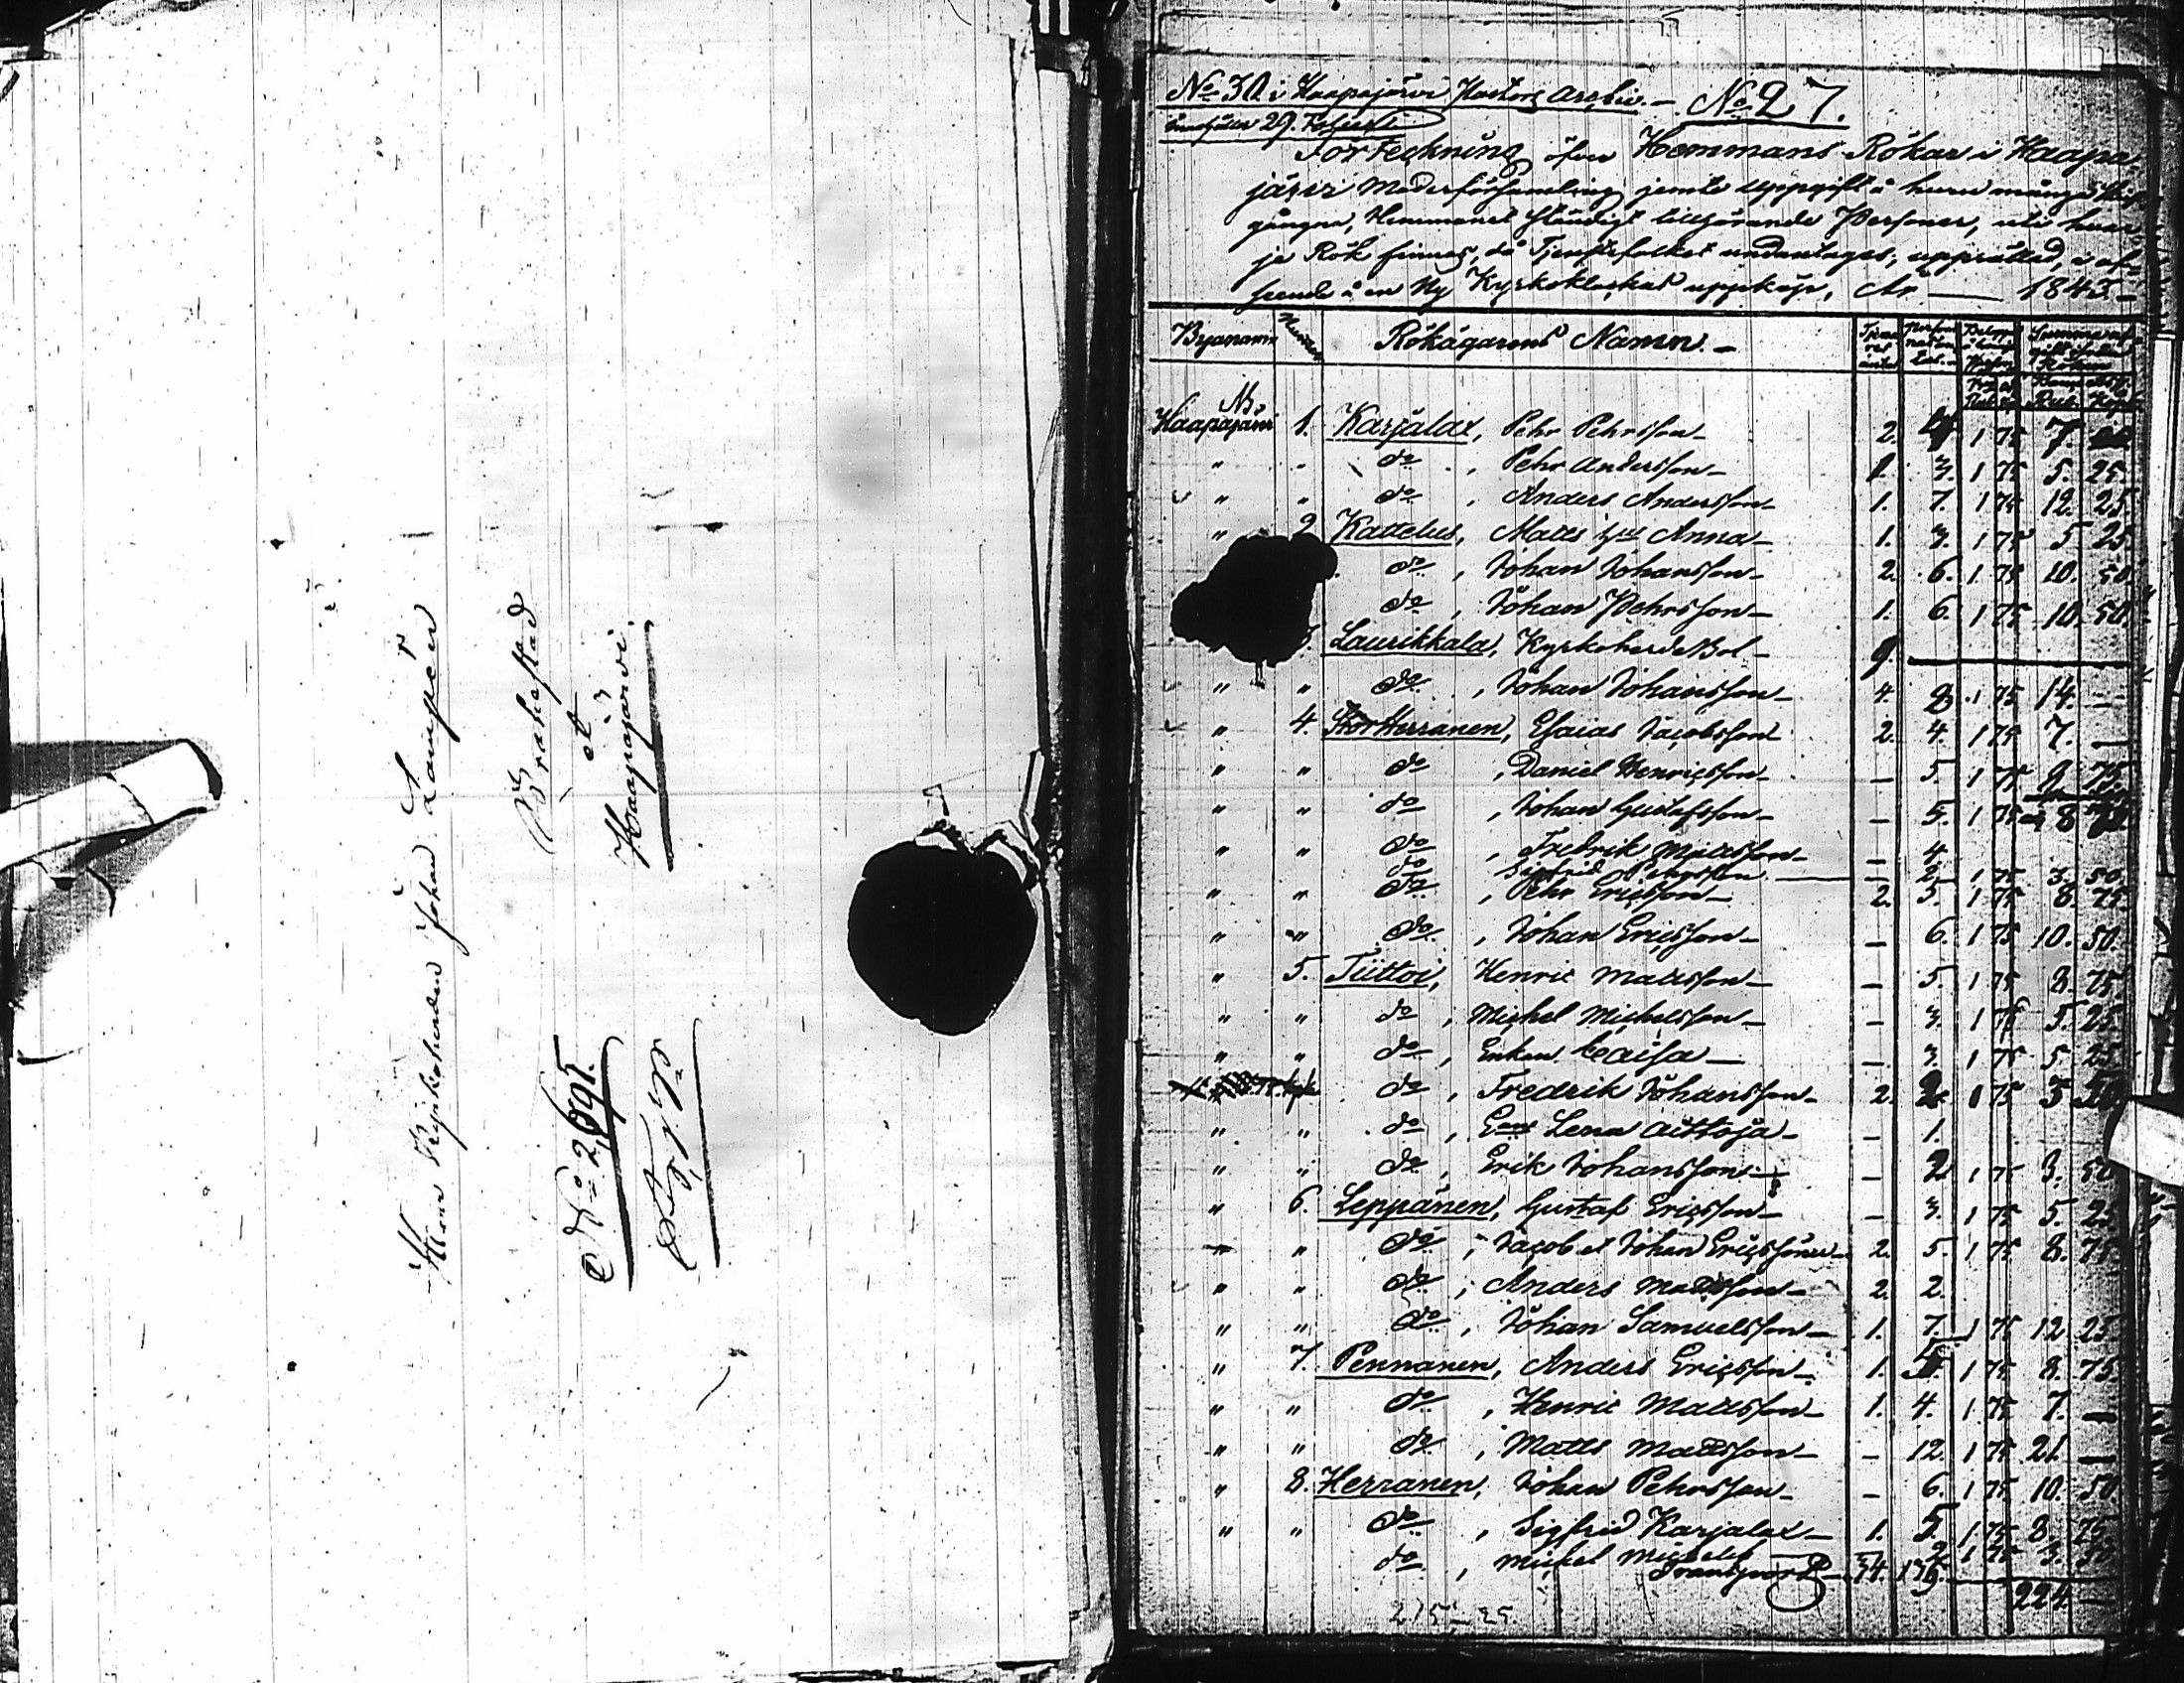 Herr Kyrkoherden Johan Lampén
Brahestad
et
Haapajärvi.
No 2,695.
No 30. i Haapajärvi Archiv. — No 27.
Forteckning öfver Hemmans Rökar i Haapa-
järvi Moderförsamling jemte uppgift å huru många
gångna, Hemmanet ständigt tillhörande Personer, uti hvar-
je Rök finnes, då Tjenstefolket undantages, upprättad, i af-
seende å en Ny Kyrkoklockas uppköp, År — 1845 —
Byanamn Nummer Rökägarens Namn. —
Rub. Kop.
Haapajärvi No 1. Karjalax, Pehr Pehrsson — 2. 4 1 75 7
" " do , Pehr Andersson — 1 3. 1 75 5. 25
" " do , Anders Andersson — 1. 7. 1 75 12. 25
" 2 Kattelus, Matts Anna — 1. 3. 1 75 5 25
do , Johan Johansson — 2. 6. 1 75 10. 50
do , Johan Pehrsson — 1. 6. 1 75 10. 50
Laurikkala, Kyrkoherde Bol — 9. —
" " do , Johan Johansson — 4. 8 1 75 14. —
" 4. Stor Herranen, Esaias Jacobsson 2. 4. 1 75 7. —
" " do , Daniel Henricsson — — 5. 1 75 8. 75
" " do , Johan Gustafsson — — 5. 1 75 8 75
" " do , Fredrik Mattsson — — 4
do Sigfrid Pehrsson — — 2. 1 75 3. 50
" " do , Pehr Ericsson — 2. 5. 1 75 8. 75.
" " do , Johan Ericsson — — 6. 1 75 10. 50.
" 5. Tiittoi, Henric Mattsson — — 5. 1 75 8. 75
" " do , Michel Michelsson — — 3. 1 75 5. 25
" " do , Enkan Caisa — — 3. 1 75 5 25
do , Fredrik Johansson — 2. 2. 1 75 3 50
" " do , Lena — — 1.
" " do , Erik Johansson — — 2 1 75 3. 50
" 6. Leppänen, Gustaf Ericsson — — 3. 1 75 5. 25
" " do , Jacob et Johan Ericssöner — 2. 5. 1 75 8. 75
" " do , Anders Mattsson — 2. 2.
" " do , Johan Samuelsson — 1. 7. 1 75 12 25
" 7. Pennanen, Anders Ericsson — 1. 5. 1 75 8. 75
" " do , Henric Mattsson — 1. 4. 1 75 7. —
" " do , Matts Mattsson — — 12. 1 75 21 —
" 8. Herranen, Johan Pehrsson — — 6. 1 75 10. 50
" " do , Sigfrid Karjalax — 1. 5. 1 75 8. 75
do , Michel 2 1 75 3. 50
Transport — 34. 136. —
224 —
215 — 25.